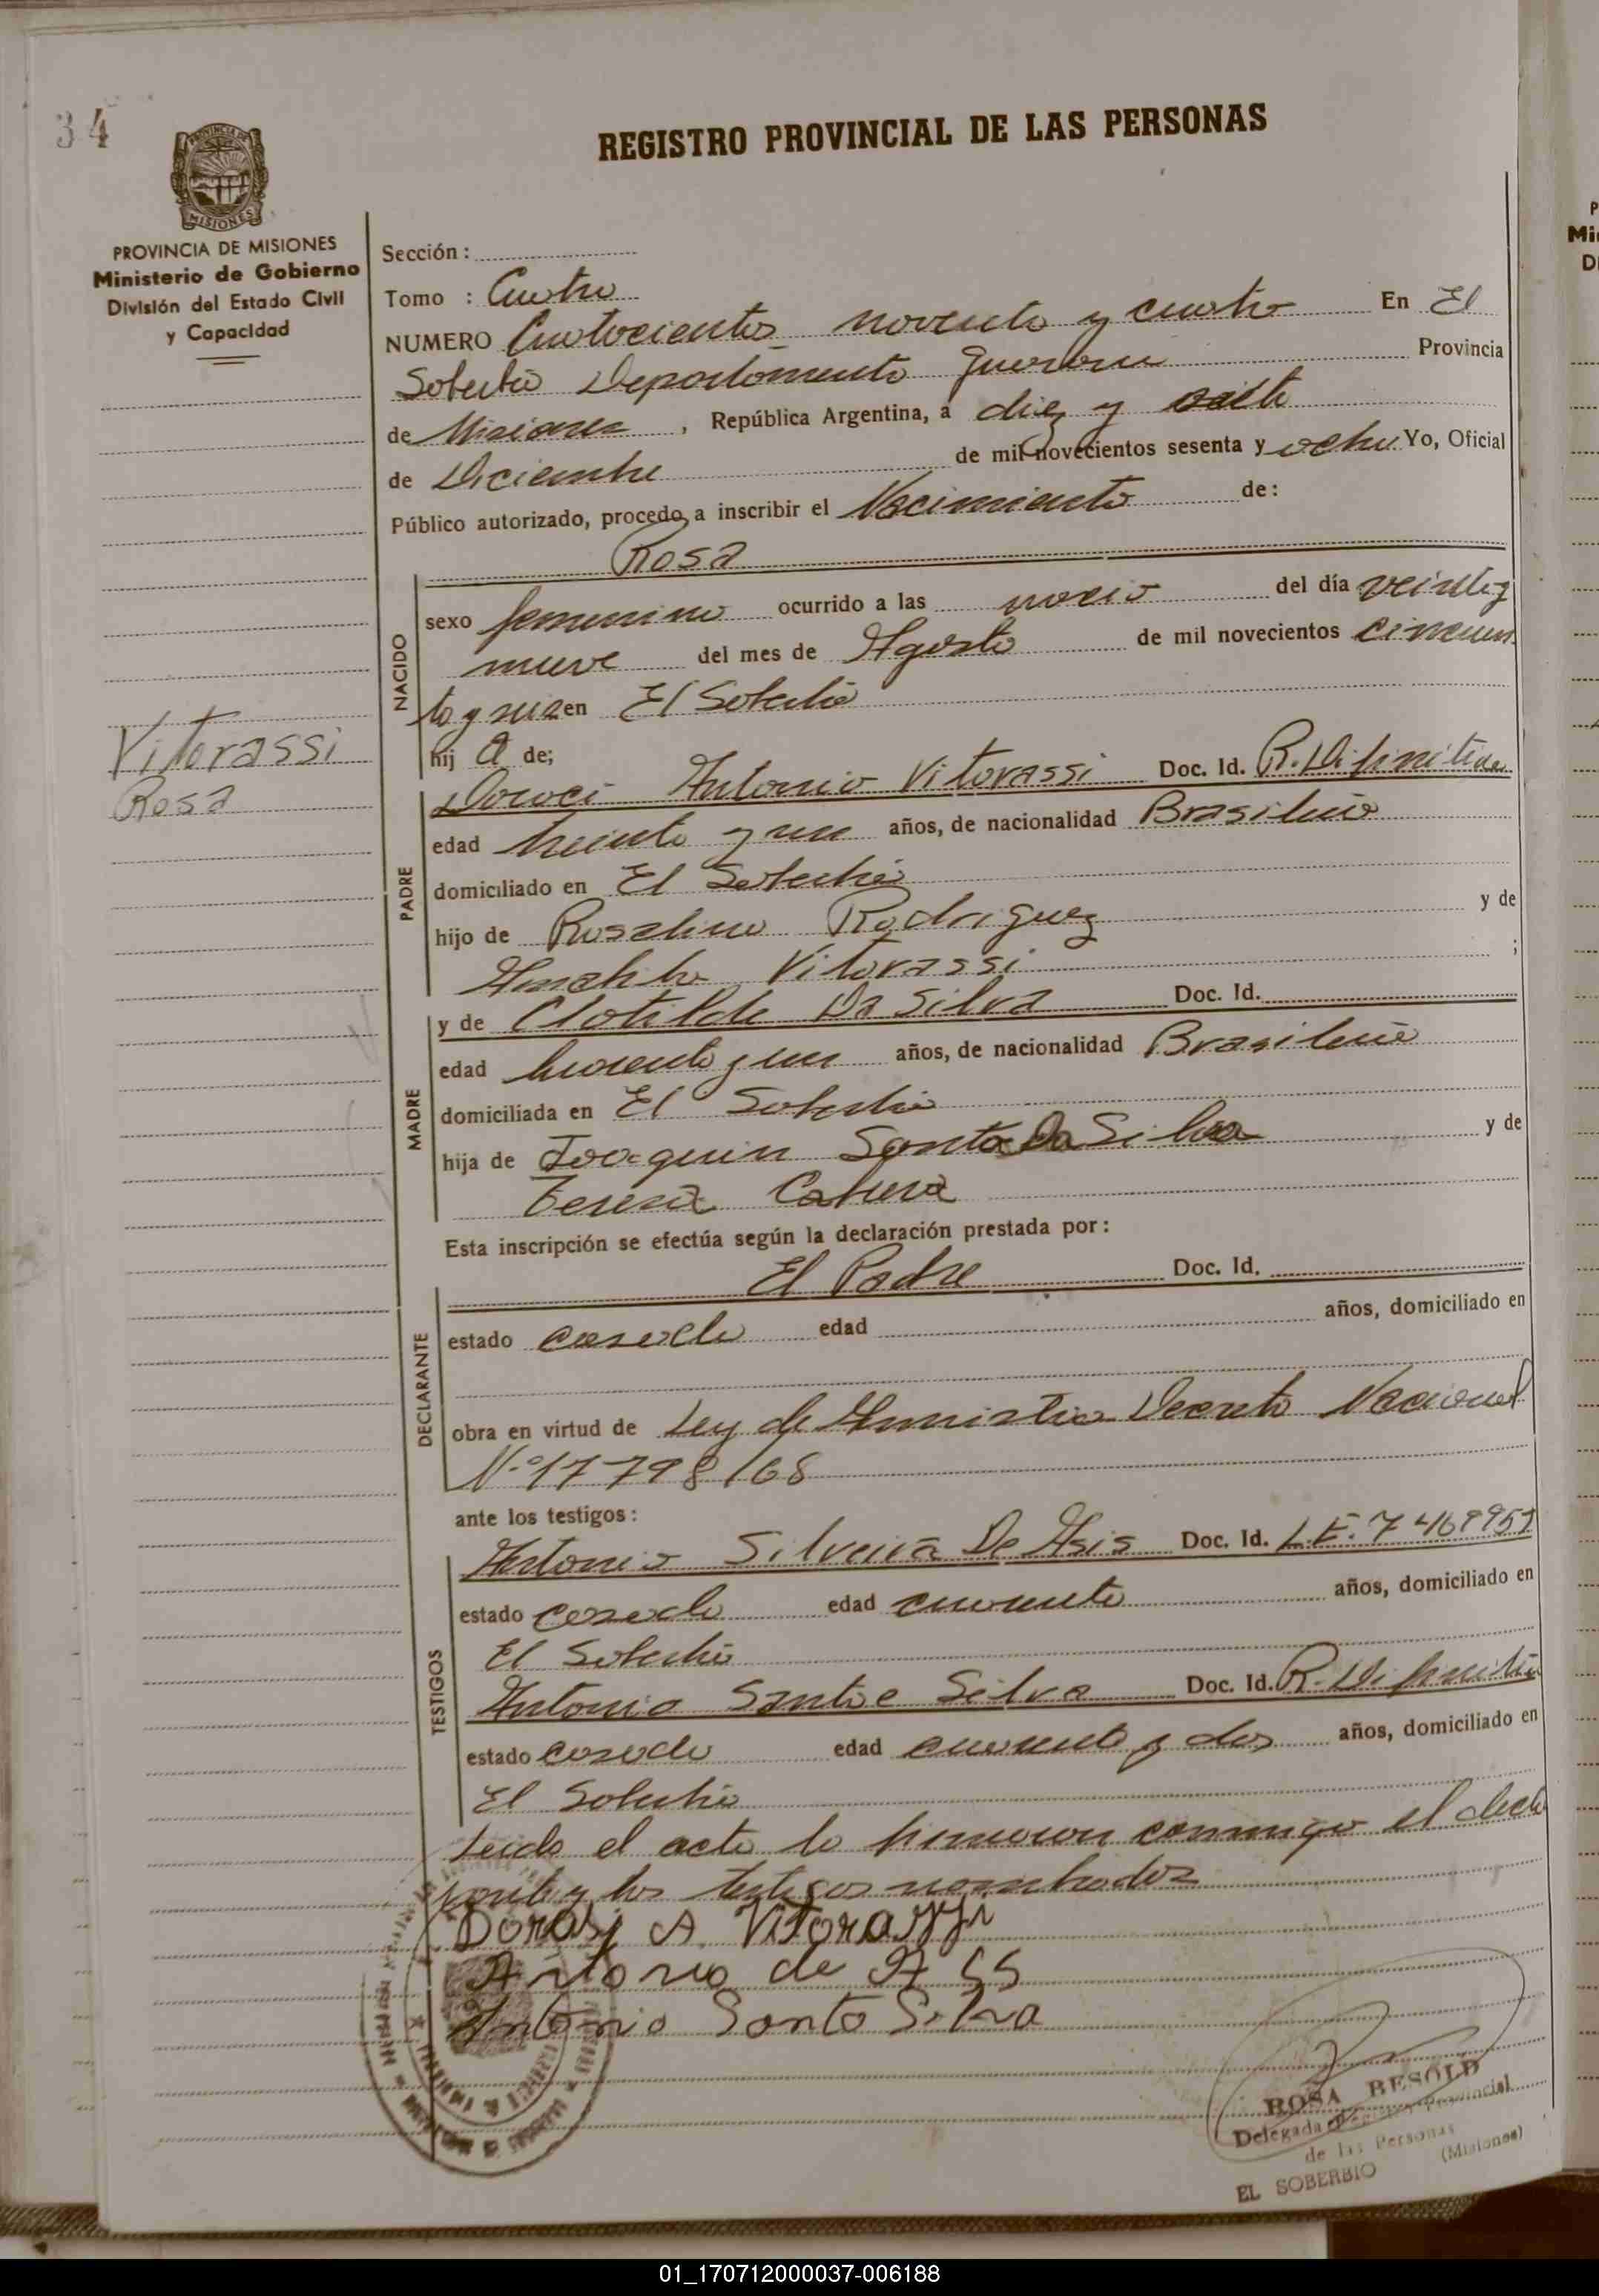 34
REGISTRO PROVINCIAL DE LAS PERSONAS
PROVINCIA DE MISIONES
MISIONES
PROVINCIA DE MISIONES
Ministerio de Gobierno
División del Estado Civil
y Capacidad
Sección:
Tomo : Cuatro
NUMERO Cuatrocientos noventa y cuatro En El
Soberbio Departamento Guarani Provincia
de Misiones, República Argentina, a diez y
de Diciembre de mil novecientos sesenta y ocho Yo, Oficial
Público autorizado, procedo a inscribir el Nacimiento de:
Rosa
NACIDO
sexo femenino ocurrido a las del día veinte y
nueve del mes de Agosto de mil novecientos cincuen
ta y en El Soberbio
hij a de;
Vitorassi
Rosa
PADRE
Doroci Antonio Vitorassi Doc. Id. R. Difinitiva
edad treinta y un años, de nacionalidad Brasileño
domiciliado en El Soberbio
hijo de Rosalino Rodriguez y de
Vitorassi ;
MADRE
y de Clotilde Da Silva Doc. Id.
edad y un años, de nacionalidad Brasileña
domiciliada en El Soberbio
hija de Joaquin Santo Da Silva y de
Teresa Cabrera
Esta inscripción se efectúa según la declaración prestada por:
DECLARANTE
El Padre Doc. Id.
estado casado edad años, domiciliado en
obra en virtud de Ley de Amnistia Decreto Nacional
N.º 17798/68
ante los testigos:
TESTIGOS
Antonio Silveira De Asis Doc. Id. L.E. 7
estado casado edad cuarenta años, domiciliado en
El Soberbio
Antonio Santo e Silva Doc. Id. R. Difinitiva
estado casado edad cuarenta y dos años, domiciliado en
El Soberbio
Leida el acta la firmaron conmigo el decla
rante y los testigos nombrados
Dorasi A. Vitorassi
Antonio de A SS
Antonio Santo Silva
ROSA BESOLD
Delegada Registro Provincial
de las Personas
EL SOBERBIO (Misiones)
P
Mi
D
01_170712000037-006188